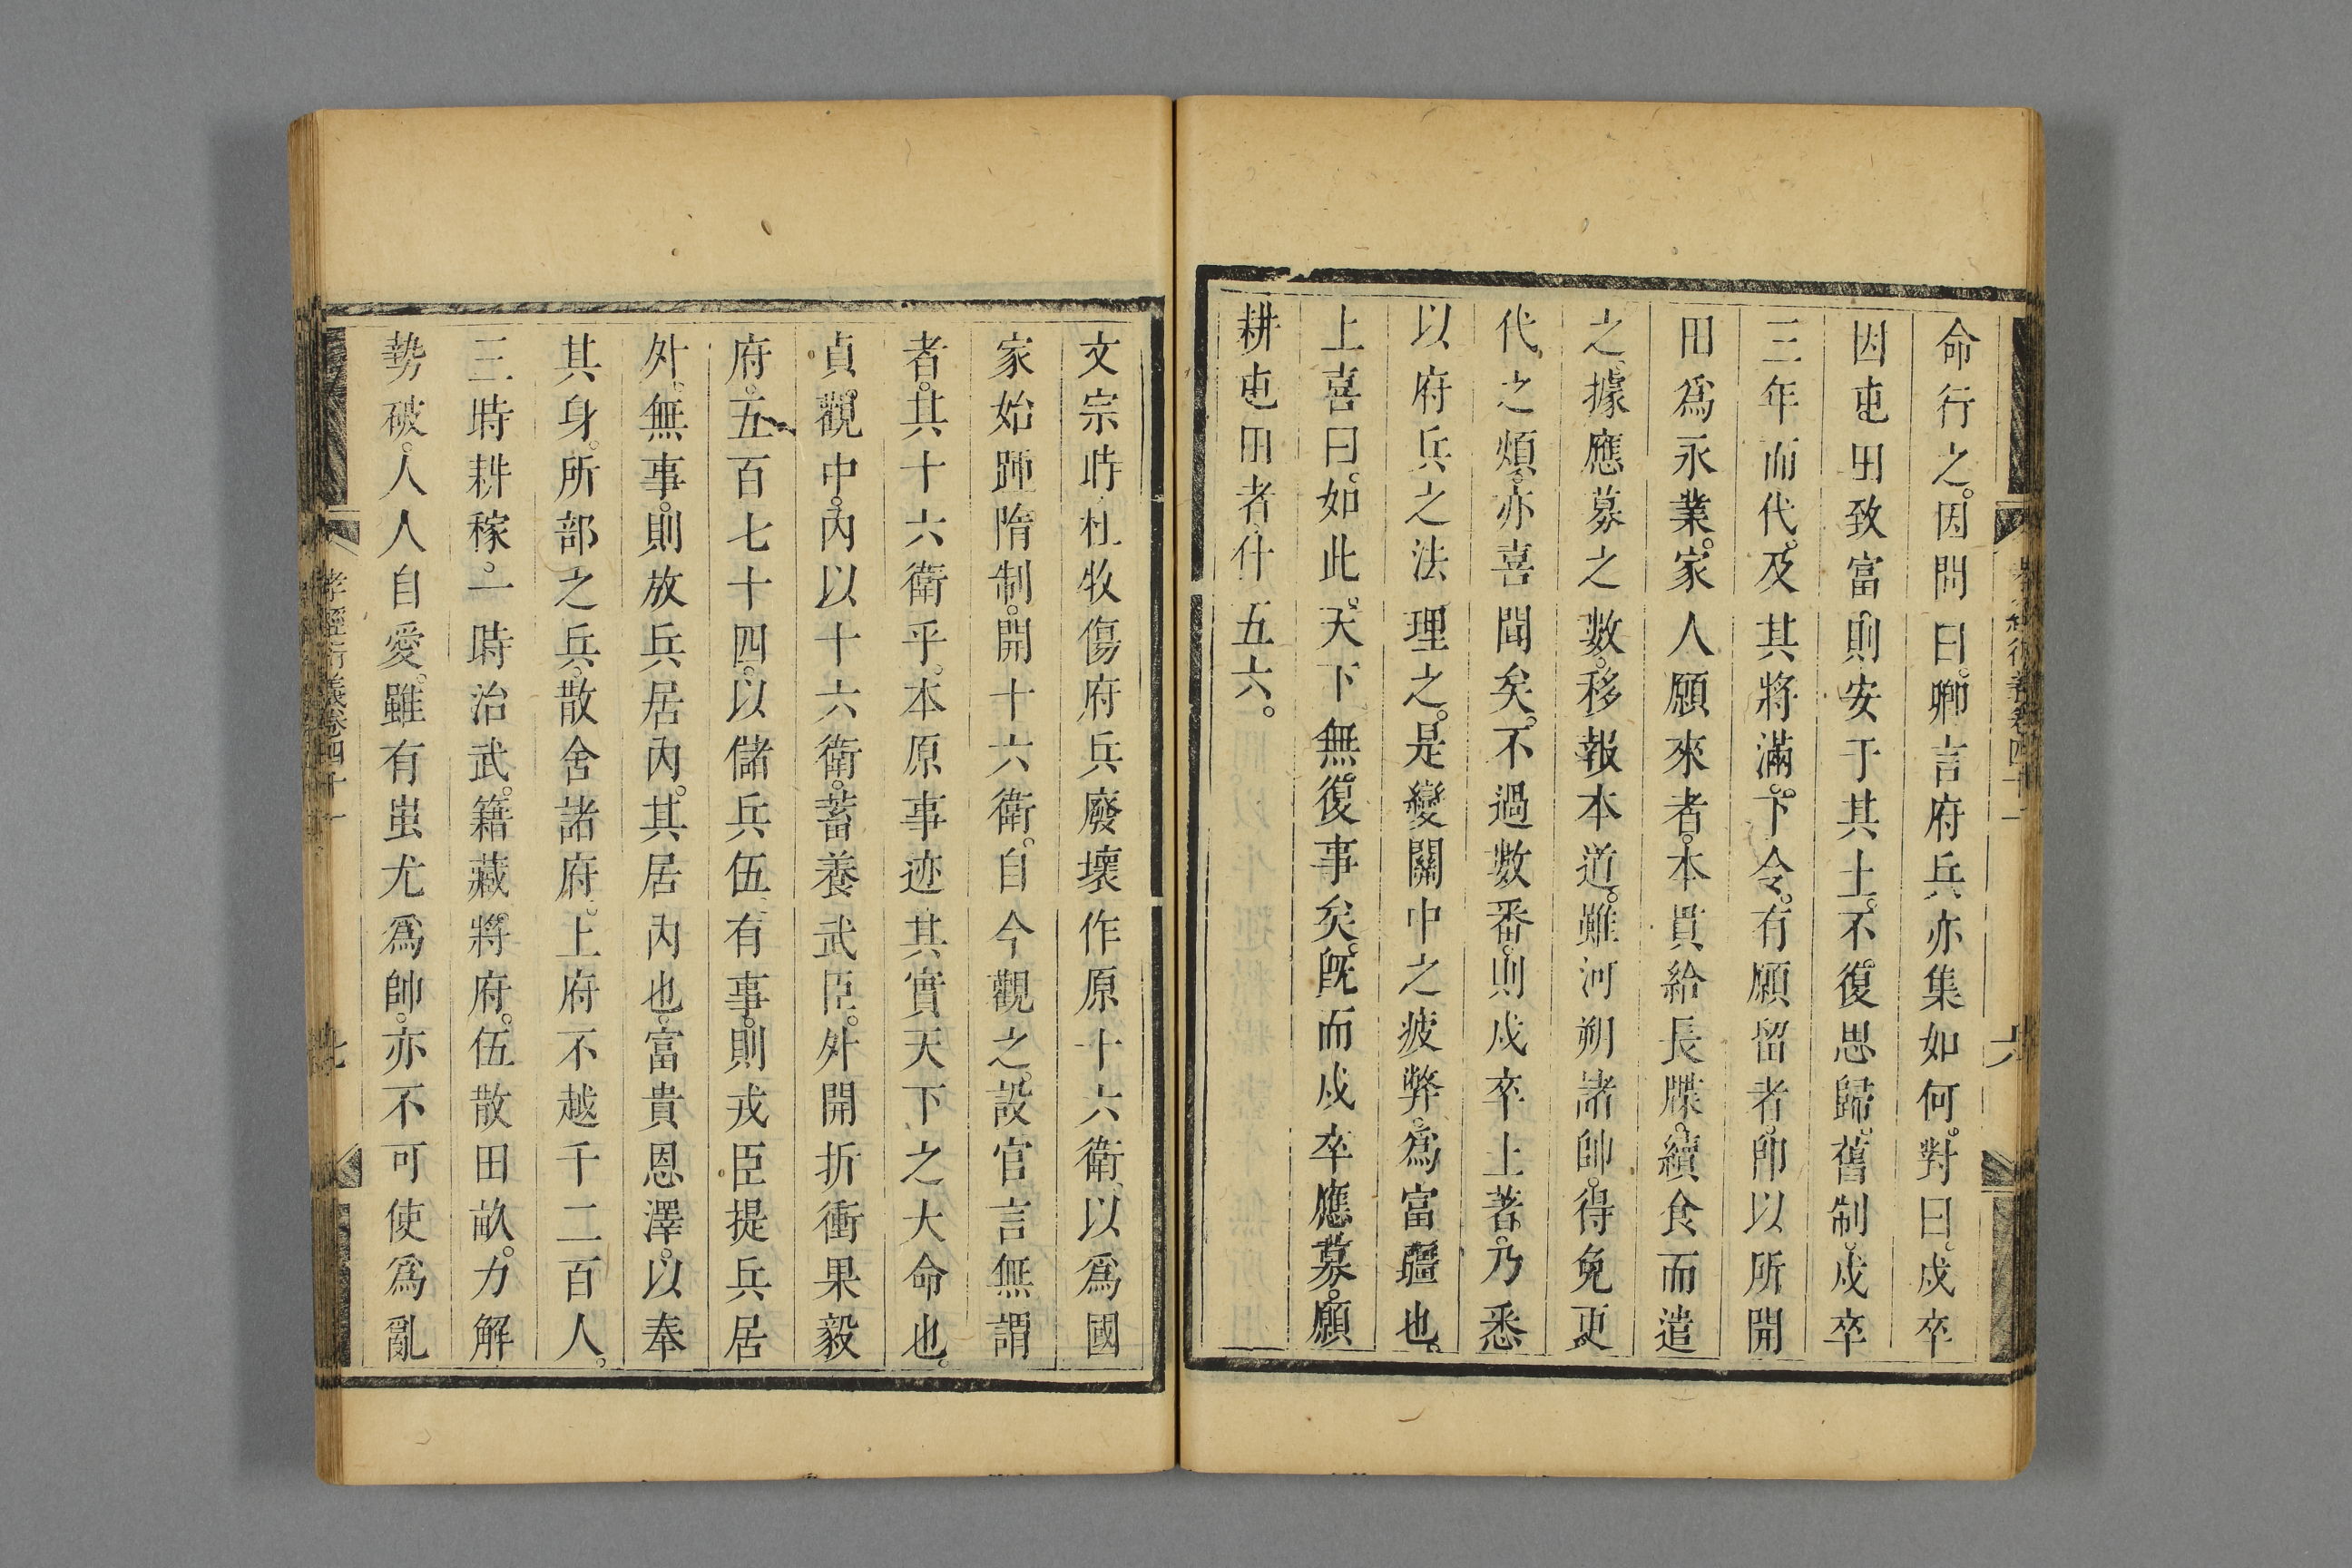 命行之。因問曰。卿言府兵亦集如何。對曰。戍卒
因屯田致富。則安于其土。不復思歸。舊制。戍卒
三年而代。及其將滿。下令。有願留者。卽以所開
田爲永業。家人願來者。本貫給長牒。續食而遣
之。據應募之數。移報本道。雖河朔諸帥。得免更
代之煩。亦喜聞矣。不過數番。則戍卒土著。乃悉
以府兵之法理之。是變關中之疲弊。爲富疆也。
上喜曰。如此。天下無復事矣。旣而戍卒應募。願
耕屯田者。什五六。
孝經衍義卷四十一
六
文宗時。杜牧傷府兵廢壞作原十六衛。以爲國
家始踵隋制。開十六衛。自今觀之。設官言無謂
者。其十六衛乎。本原事迹。其實天下之大命也。
貞觀中。內以十六衛。蓄養武臣。外開折衝果毅
府。五百七十四。以儲兵伍。有事。則戎臣提兵居
外。無事。則放兵居內。其居內也。富貴恩澤。以奉
其身。所部之兵。散舍諸府。上府不越千二百人。
三時耕稼。一時治武。籍藏將府。伍散田畝。力解
勢破。人人自愛。雖有蚩尤爲帥。亦不可使爲亂
孝經衍義卷四十一
七